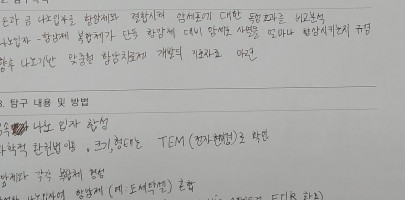 은과 금 나노입자를 항암제와 결합시켜 암세포에 대한 독성효과를 비교분석
나노입자-항암제 복합체가 단독 항암제 대비 암세포 사멸을 얼마나 향상시키는지 규명
금속 나노기반 맞춤형 항암치료제 개발의 기초자료 마련
3. 탐구 내용 및 방법
금속 나노 입자 합성
화학적 환원법 이용, 크기, 형태는 TEM (전자현미경)로 확인
각각 복합체 형성
항암제 (예: 도세탁셀) 혼합
FTIR